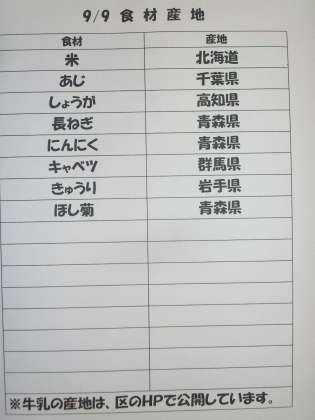 9/9 食材産地
食材 産地
米 北海道
あじ 千葉県
しょうが 高知県
長ねぎ 青森県
にんにく 青森県
キャベツ 群馬県
きゅうり 岩手県
ほし菊 青森県
※牛乳の産地は、区のHPで公開しています。